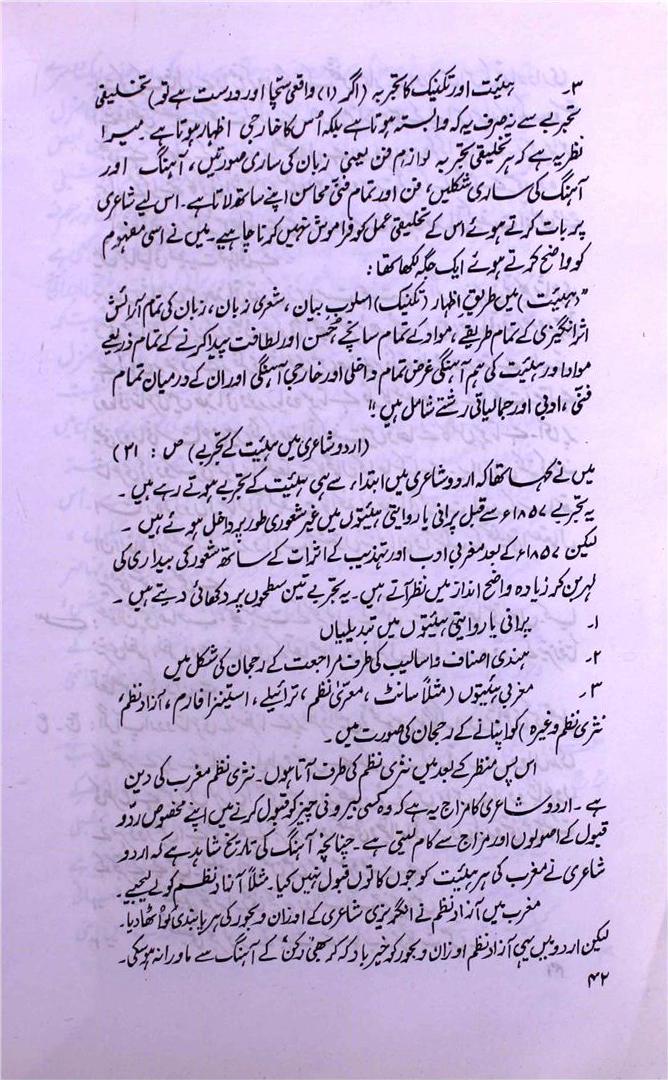 ۳۔ ہیئت اور تکنیک کا تجربہ (اگر (۱) واقعی سچا اور درست ہے تو) تخلیقی
تجربے سے نہ صرف یہ کہ وابستہ ہوتا ہے بلکہ اُس کا خارجی اظہار ہوتا ہے۔ میرا
نظریہ ہے کہ ہر تخلیقی تجربہ لوازمِ فن یعنی زبان کی ساری صورتیں، آہنگ اور
آہنگ کی ساری شکلیں، فن اور تمام فنی محاسن اپنے ساتھ لاتا ہے۔ اس لیے شاعری
پر بات کرتے ہوئے اس کے تخلیقی عمل کو فراموش نہیں کرنا چاہیے۔ میں نے اسی مفہوم
کو واضح کرتے ہوئے ایک جگہ لکھا تھا:
”(ہیئت) میں طریقِ اظہار (تکنیک) اسلوبِ بیان، شعری زبان، زبان کی تمام آرائش
اثر انگیزی کے تمام طریقے، مواد کے تمام سانچے، حسن اور لطافت پیدا کرنے کے تمام ذریعے
مواد اور ہیئت کی ہم آہنگی غرض تمام داخلی اور خارجی آہنگی اور ان کے درمیان تمام
فنی، ادبی اور جمالیاتی رشتے شامل ہیں“!
(اردو شاعری میں ہیئت کے تجربے) ص: ۲۱)
میں نے کہا تھا کہ اردو شاعری میں ابتداء سے ہی ہیئت کے تجربے ہوتے رہے ہیں۔
یہ تجربے ۱۸۵۷ء سے قبل پرانی یا روایتی ہیئتوں میں غیر شعوری طور پر داخل ہوئے ہیں۔
لیکن ۱۸۵۷ء کے بعد مغربی ادب اور تہذیب کے اثرات کے ساتھ شعور کی بیداری کی
لہر بن کر زیادہ واضح انداز میں نظر آتے ہیں۔ یہ تجربے تین سطحوں پر دکھائی دیتے ہیں۔
۱۔ پرانی یا روایتی ہیئتوں میں تبدیلیاں
۲۔ ہندی اصناف و اسالیب کی طرف مراجعت کے رجحان کی شکل میں
۳۔ مغربی ہیئتوں (مثلاً سانٹ، معریٰ نظم، ترائیلے، اسٹینزا فارم، آزاد نظم،
نثری نظم وغیرہ) کو اپنانے کے رجحان کی صورت میں۔
اس پس منظر کے بعد میں نثری نظم کی طرف آتا ہوں۔ نثری نظم مغرب کی دین
ہے۔ اردو شاعری کا مزاج یہ ہے کہ وہ کسی بیرونی چیز کو قبول کرنے میں اپنے مخصوص ردّ و
قبول کے اصولوں اور مزاج سے کام لیتی ہے۔ چنانچہ آہنگ کی تاریخ شاہد ہے کہ اردو
شاعری نے مغرب کی ہر ہیئت کو جوں کا توں قبول نہیں کیا۔ مثلاً آزاد نظم کو لے لیجیے۔
مغرب میں آزاد نظم نے انگریزی شاعری کے اوزان و بحور کی ہر پابندی کو اُٹھا دیا۔
لیکن اردو میں یہی آزاد نظم اوزان و بحور کو خیر باد کہہ کر بھی ’رکن‘ کے آہنگ سے ماورا نہ ہو سکی۔
۴۲